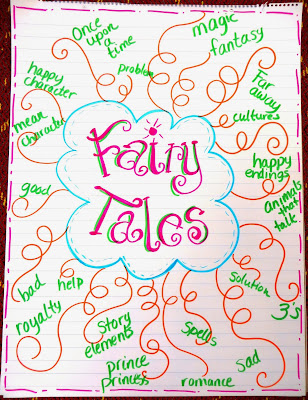 Once
upon
a
time
magic
fantasy
problem
happy
character
Far
away
cultures
mean
character
Fairy
Tales
happy
endings
good
animals
that
talk
bad
help
solution
3's
royalty
story
elements
spells
prince
princess
romance
sad